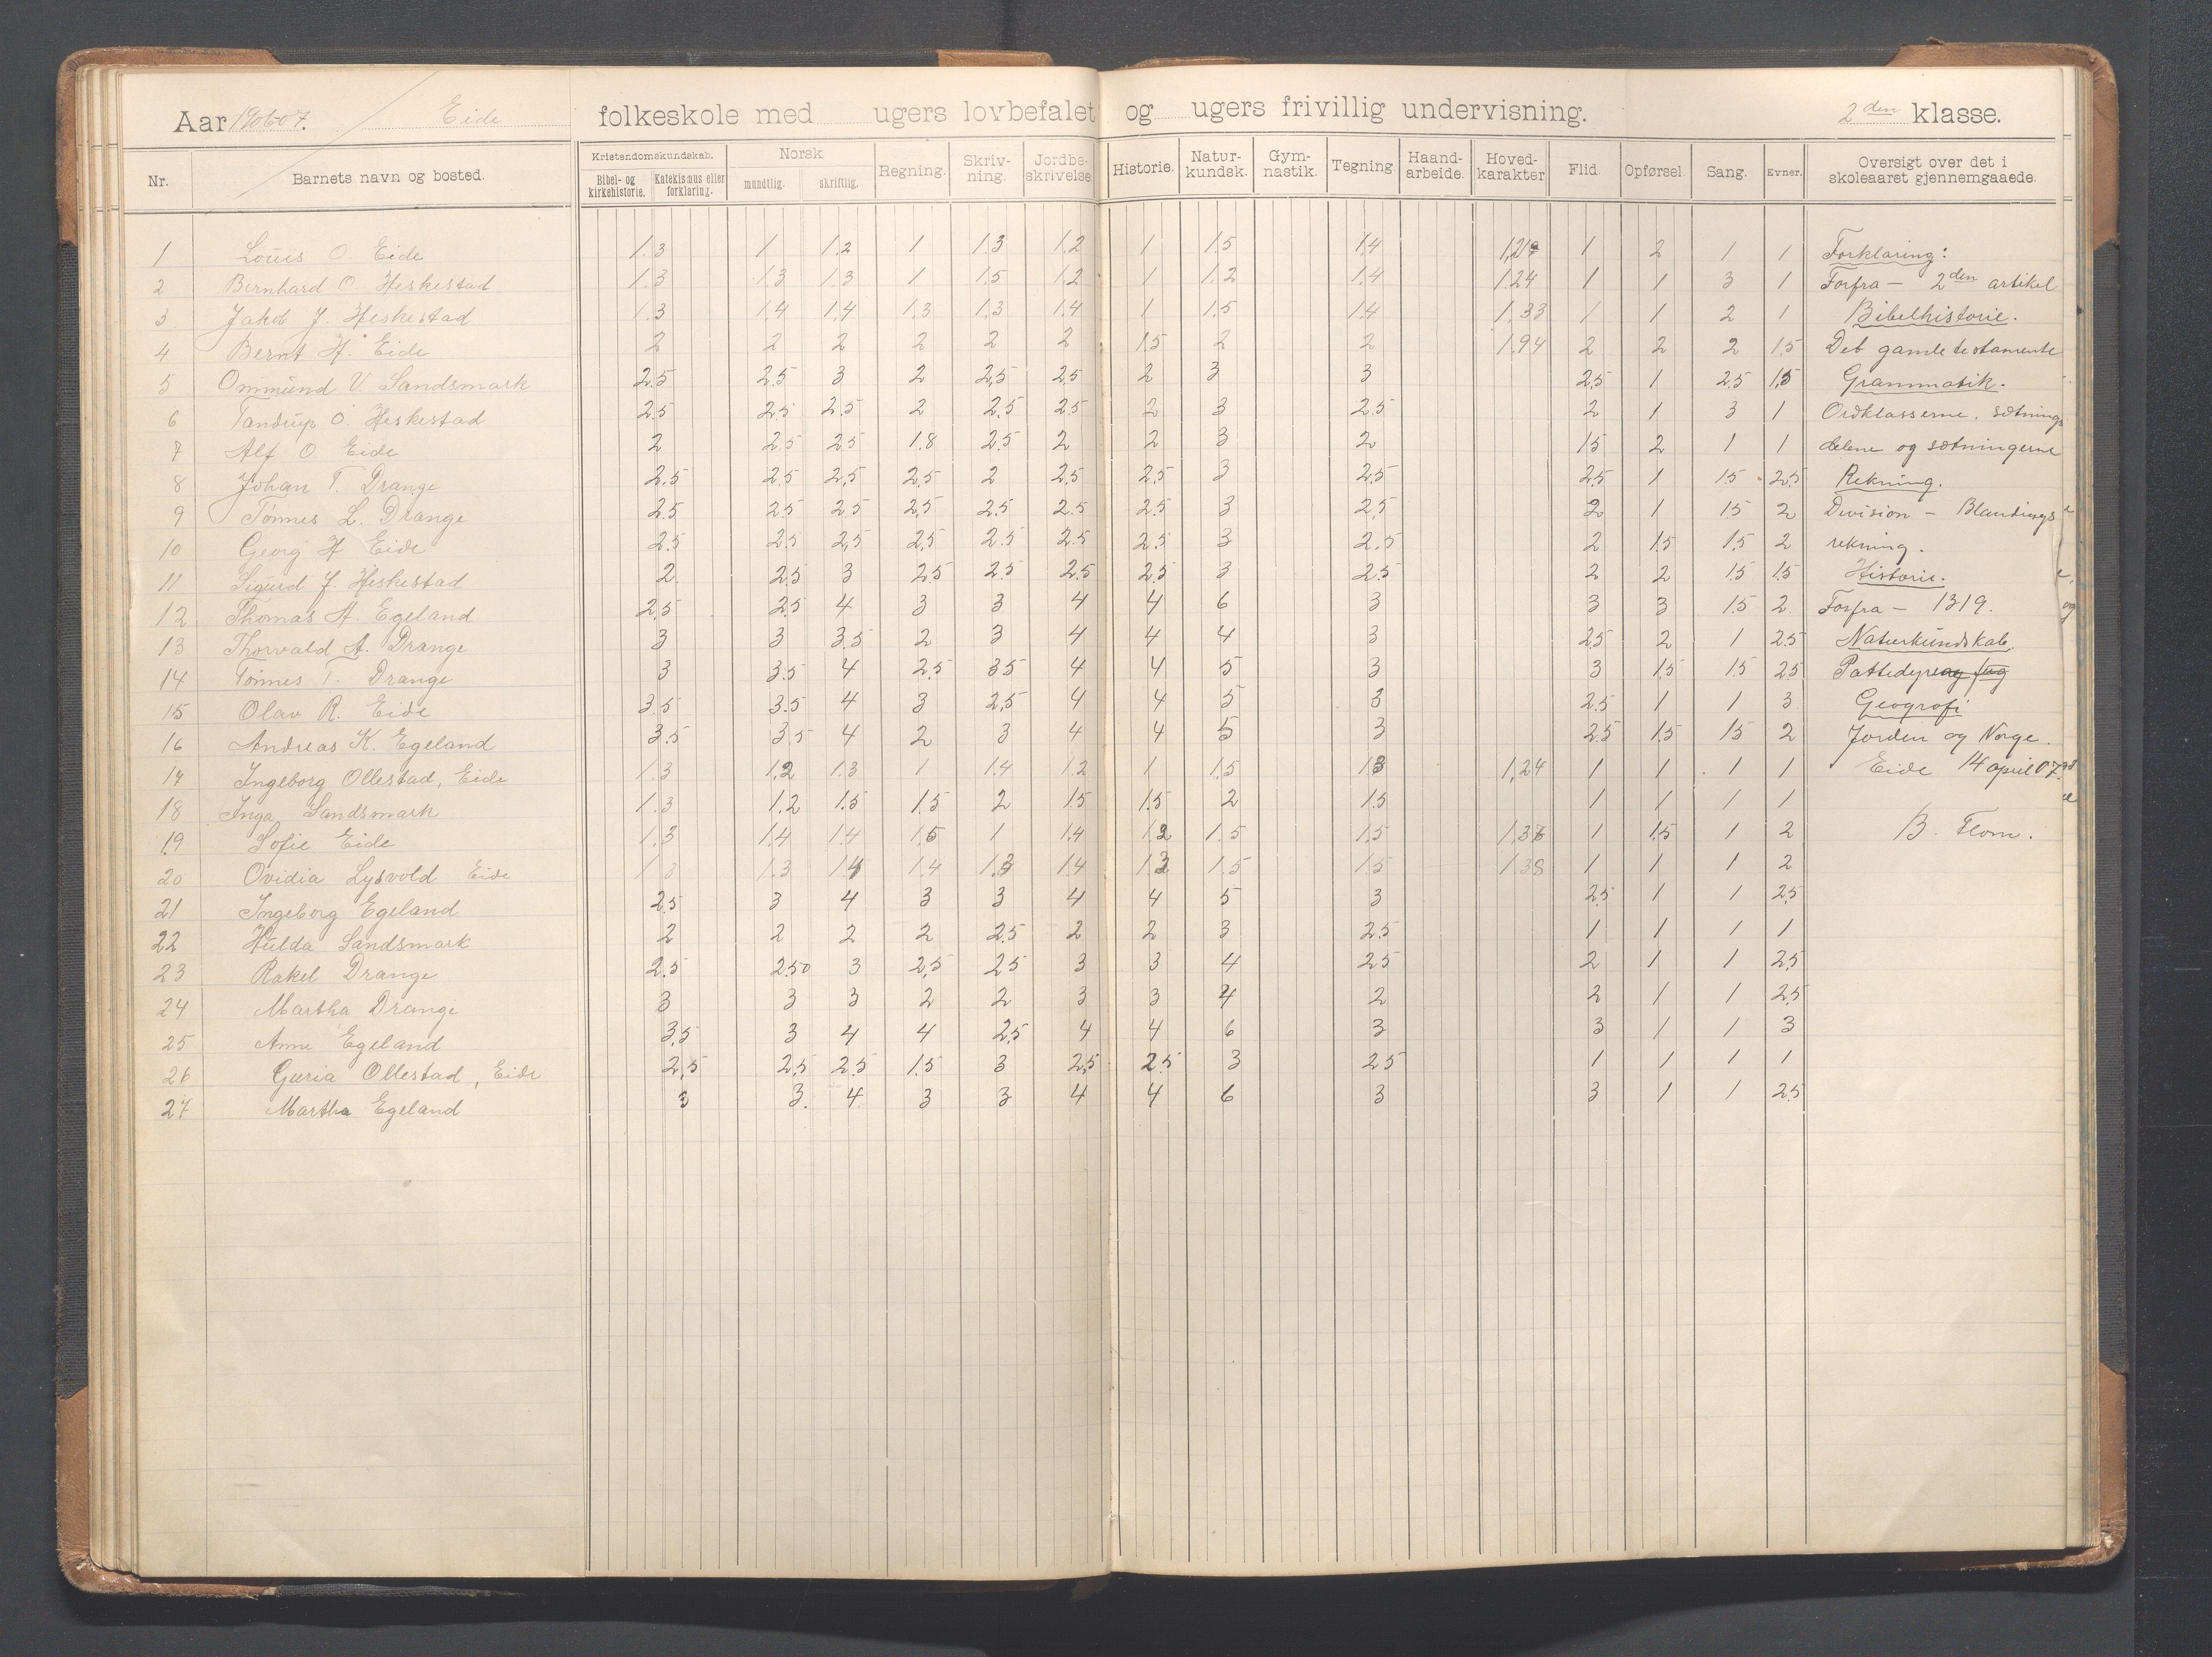 Aar 190607. Eide folkeskole med ugers lovbefalet og ugers frivillig undervisning. 2den klasse.
Nr. Barnets navn og bosted. Kristendomskundskab. Bibel- og kirkehistorie. Katekismus eller forklaring. Norsk mundtlig. skriftlig. Regning. Skriv-ning. Jordbe-skrivelse Historie. Natur-kundsk. Gym-nastik. Tegning Haand-arbeide. Hoved-karakter Flid. Opførsel. Sang. Evner. Oversigt over det i skoleaaret gjennemgaaede.
1 Louis O. Eide 1.3 1 1.2 1 1.3 1.2 1 1.5 1.4 1 2 1 1 Forklaring:
2 Bernhard O. Heskestad 1.3 1.3 1.3 1 1.5 1.2 1 1.2 1.4 1.24 1 1 3 1 Forfra — 2den artikel
3 Jakob J. Heskestad 1.3 1.4 1.4 1.3 1.3 1.4 1 1.5 1.4 1,33 1 1 2 1 Bibelhistorie.
4 Bernt H. Eide 2 2 2 2 2 2 1.5 2 2 1.94 2 2 2 1.5 Det gamle testamente
5 Ommund V. Sandsmark 2.5 2.5 3 2 2,5 2.5 2 3 3 2,5 1 2.5 1,5 Grammatik.
6 Tandrup O. Heskestad 2.5 2.5 2.5 2 2.5 2.5 2 3 2.5 2 1 3 1 Ordklasserne, sætnings
7 Alf O. Eide 2 2.5 2.5 1.8 2.5 2 2 3 2 1.5 2 1 1 delene og sætningerne
8 Johan T. Drange 2.5 2.5 2,5 2,5 2 2,5 2.5 3 2,5 2,5 1 1.5 2,5 Rekning.
9 Tønnes L. Drange 2.5 2.5 2.5 2,5 2.5 2.5 2.5 3 2,5 2 1 1.5 2 Division — Blandings
10 Georg H Eide 2.5 2.5 2,5 2,5 2.5 2.5 2.5 3 2.5 2 1.5 1,5 2 rekning.
11 Sigurd J. Heskestad 2 2.5 3 2.5 2.5 2.5 2.5 3 2.5 2 2 1.5 1.5 Historie.
12 Thomas A. Egeland 2,5 2.5 4 3 3 4 4 6 3 3 3 1.5 2 Forfra — 1319.
13 Thorvald A. Drange 3 3 3.5 2 3 4 4 4 3 2,5 2 1 2.5 Naturkundskab.
14 Tønnes T. Drange 3 3.5 4 2.5 3.5 4 4 5 3 3 1.5 1.5 2.5 Pattedyr
15 Olav R. Eide 3.5 3.5 4 3 2,5 4 4 5 3 2.5 1 1 3 Geografi
16 Andreas K. Egeland 3.5 3.5 4 2 3 4 4 5 3 2.5 1.5 1.5 2 Jorden og Norge.
17 Ingeborg Ollestad, Eide 1.3 1.2 1.3 1 1.4 1.2 1 1.5 1.3 1,24 1 1 1 1 Eide 14 april 07
18 Inga Sandsmark 1.3 1.2 1.5 1.5 2 1.5 1.5 2 1.5 1 1 1 1
19 Sofie Eide 1.3 1.4 1.4 1.5 1 1.4 1.2 1.5 1.5 1 1.5 1 2 B. Flom.
20 Ovidia Lysvold Eide 1.3 1.3 1.4 1.4 1.3 1.4 1.5 1.5 1.38 1 1 1 2
21 Ingeborg Egeland 2.5 3 4 3 3 4 4 5 3 2,5 1 1 2,5
22 Hulda Sandsmark 2 2 2 2 2.5 2 2 3 2.5 1 1 1 1
23 Rakel Drange 2.5 2.50 3 2,5 2.5 3 3 4 2.5 2 1 1 2,5
24 Martha Drange 3 3 3 2 2 3 3 4 2 2 1 1 2,5
25 Anne Egeland 3,5 3 4 4 2.5 4 4 6 3 3 1 1 3
26 Guria Ollestad, Eide 2,5 2,5 2.5 1.5 3 2,5 2.5 3 2.5 1 1 1 1
27 Martha Egeland 3 3. 4. 3 3 4 4 6 3 3 1 1 2.5